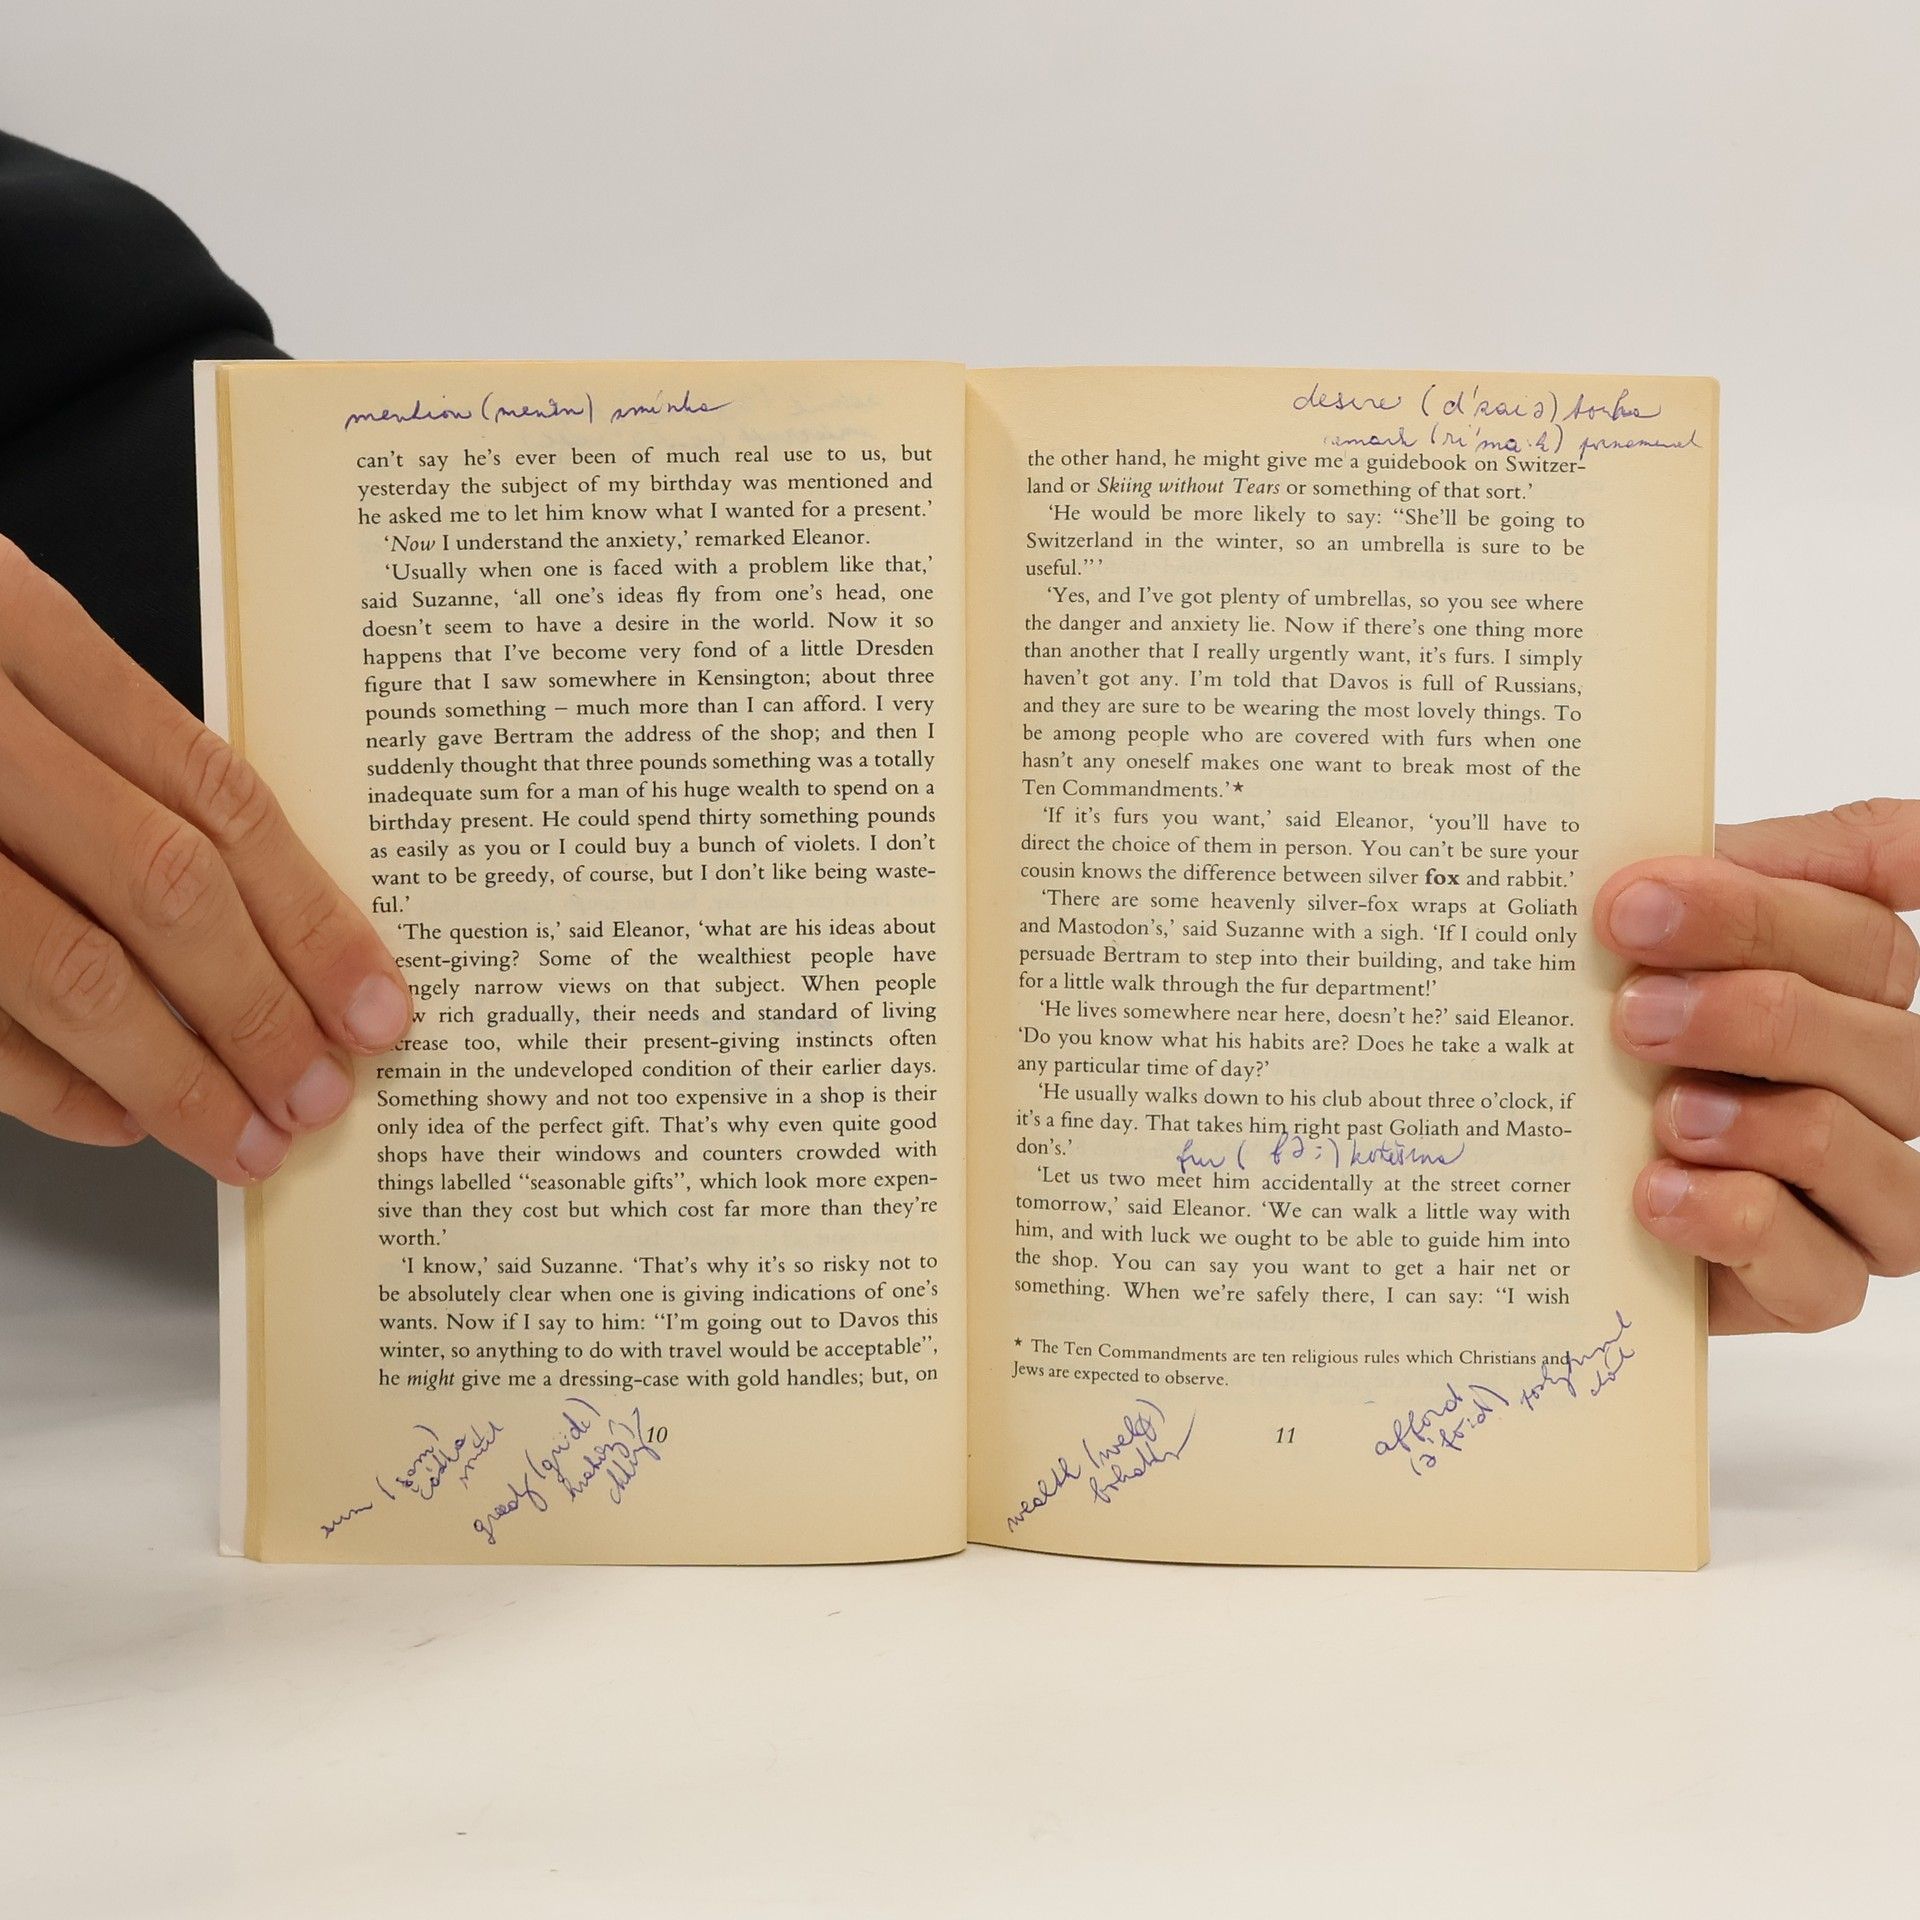 mention (menšn) zmínka
can't say he's ever been of much real use to us, but
yesterday the subject of my birthday was mentioned and
he asked me to let him know what I wanted for a present.'
'Now I understand the anxiety,' remarked Eleanor.
'Usually when one is faced with a problem like that,'
said Suzanne, 'all one's ideas fly from one's head, one
doesn't seem to have a desire in the world. Now it so
happens that I've become very fond of a little Dresden
figure that I saw somewhere in Kensington; about three
pounds something – much more than I can afford. I very
nearly gave Bertram the address of the shop; and then I
suddenly thought that three pounds something was a totally
inadequate sum for a man of his huge wealth to spend on a
birthday present. He could spend thirty something pounds
as easily as you or I could buy a bunch of violets. I don't
want to be greedy, of course, but I don't like being waste-
ful.'
'The question is,' said Eleanor, 'what are his ideas about
esent-giving? Some of the wealthiest people have
ngely narrow views on that subject. When people
w rich gradually, their needs and standard of living
crease too, while their present-giving instincts often
remain in the undeveloped condition of their earlier days.
Something showy and not too expensive in a shop is their
only idea of the perfect gift. That's why even quite good
shops have their windows and counters crowded with
things labelled "seasonable gifts", which look more expen-
sive than they cost but which cost far more than they're
worth.'
'I know,' said Suzanne. 'That's why it's so risky not to
be absolutely clear when one is giving indications of one's
wants. Now if I say to him: "I'm going out to Davos this
winter, so anything to do with travel would be acceptable",
he might give me a dressing-case with gold handles; but, on
sum (sam)
částka
greedy (gri:di)
10
desire (di'zaiə) touha
remark (ri'ma:k)
the other hand, he might give me a guidebook on Switzer-
land or Skiing without Tears or something of that sort.'
'He would be more likely to say: "She'll be going to
Switzerland in the winter, so an umbrella is sure to be
useful."'
'Yes, and I've got plenty of umbrellas, so you see where
the danger and anxiety lie. Now if there's one thing more
than another that I really urgently want, it's furs. I simply
haven't got any. I'm told that Davos is full of Russians,
and they are sure to be wearing the most lovely things. To
be among people who are covered with furs when one
hasn't any oneself makes one want to break most of the
Ten Commandments.'★
'If it's furs you want,' said Eleanor, 'you'll have to
direct the choice of them in person. You can't be sure your
cousin knows the difference between silver fox and rabbit.'
'There are some heavenly silver-fox wraps at Goliath
and Mastodon's,' said Suzanne with a sigh. 'If I could only
persuade Bertram to step into their building, and take him
for a little walk through the fur department!'
'He lives somewhere near here, doesn't he?' said Eleanor.
'Do you know what his habits are? Does he take a walk at
any particular time of day?'
'He usually walks down to his club about three o'clock, if
it's a fine day. That takes him right past Goliath and Masto-
don's.'
fur (fə:) kožešina
'Let us two meet him accidentally at the street corner
tomorrow,' said Eleanor. 'We can walk a little way with
him, and with luck we ought to be able to guide him into
the shop. You can say you want to get a hair net or
something. When we're safely there, I can say: "I wish
★ The Ten Commandments are ten religious rules which Christians and
Jews are expected to observe.
wealth (welθ)
afford
(ə'fo:d)
11